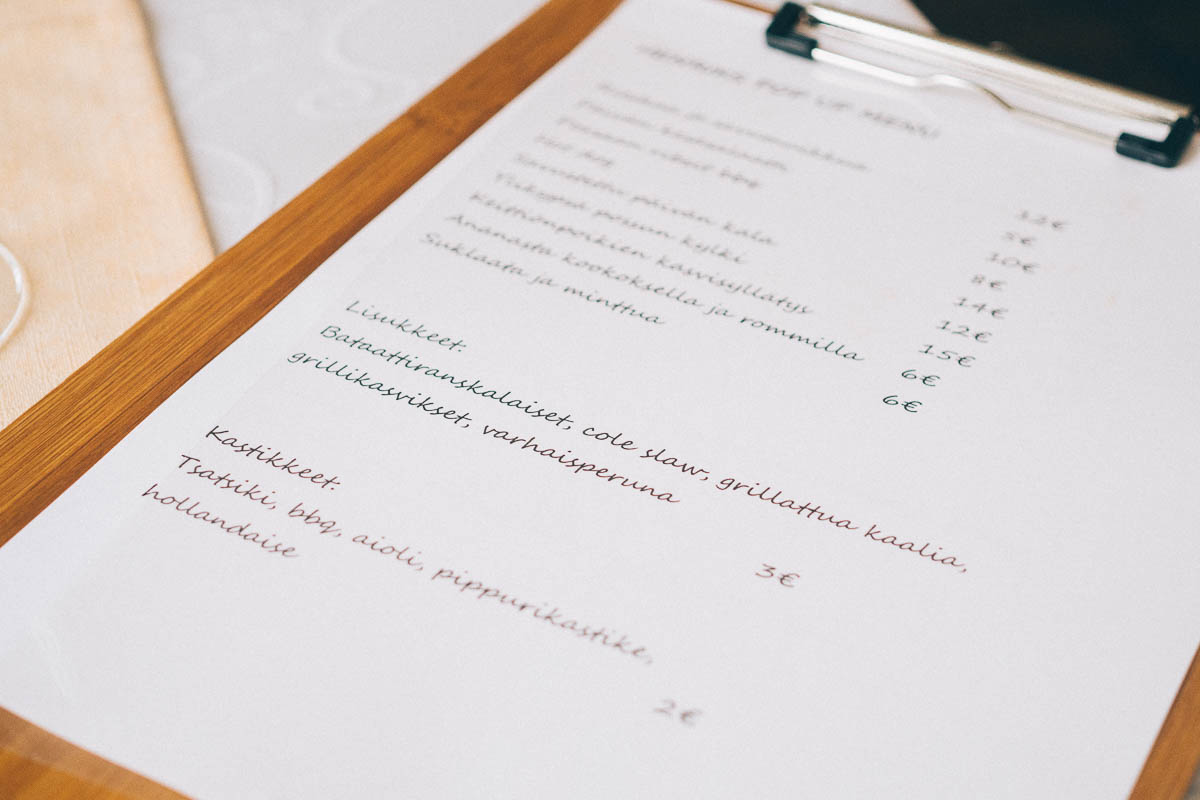 POP UP MENU
ja 12€
5€
ribsit bbq 10€
Hot dog 8€
Savustettu päivän kala 14€
Ylikypsä possun kylki 12€
Keittiönpoikien kasvisyllätys 15€
Ananasta kookoksella ja rommilla 6€
Suklaata ja minttua 6€
Lisukkeet:
Bataattiranskalaiset, cole slaw, grillattua kaalia,
grillikasvikset, varhaisperuna
3€
Kastikkeet:
Tsatsiki, bbq, aioli, pippurikastike,
hollandaise
2€